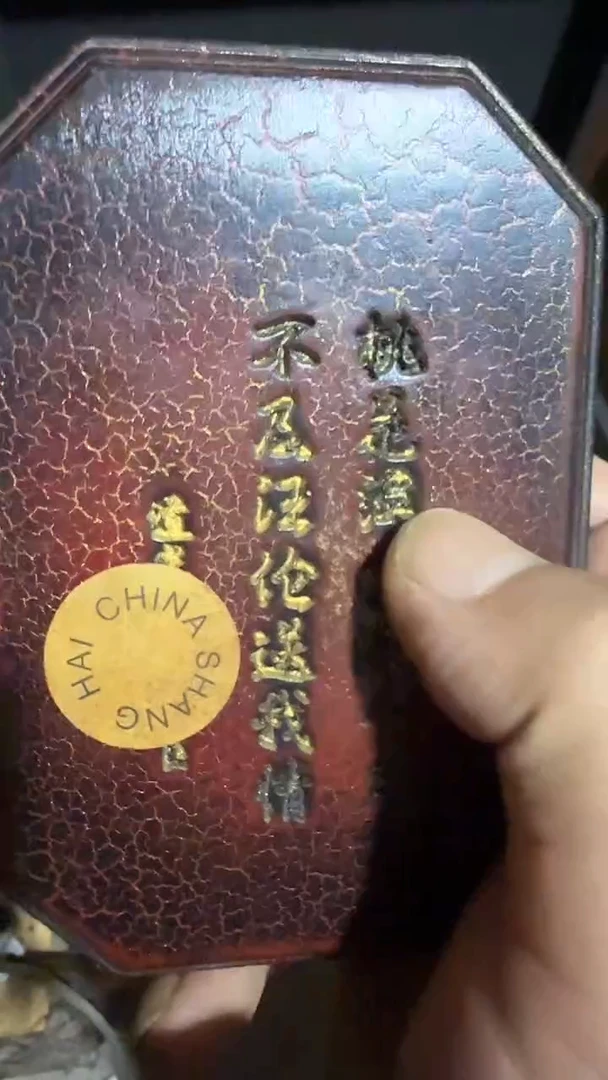 桃花潭
不及汪伦送我情
道
CHINA SHANG HAI